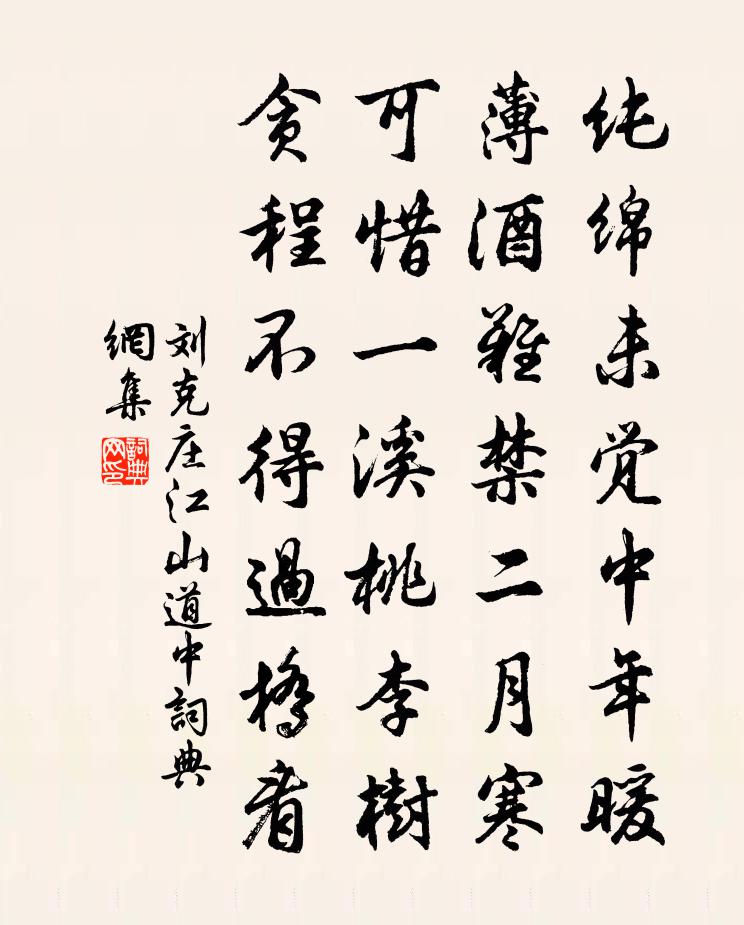 纯绵未觉中年暖
薄酒難禁二月寒
可惜一溪桃李樹
贪程不得過橋看
刘克庄江山道中詞典
網集
詞典
网印